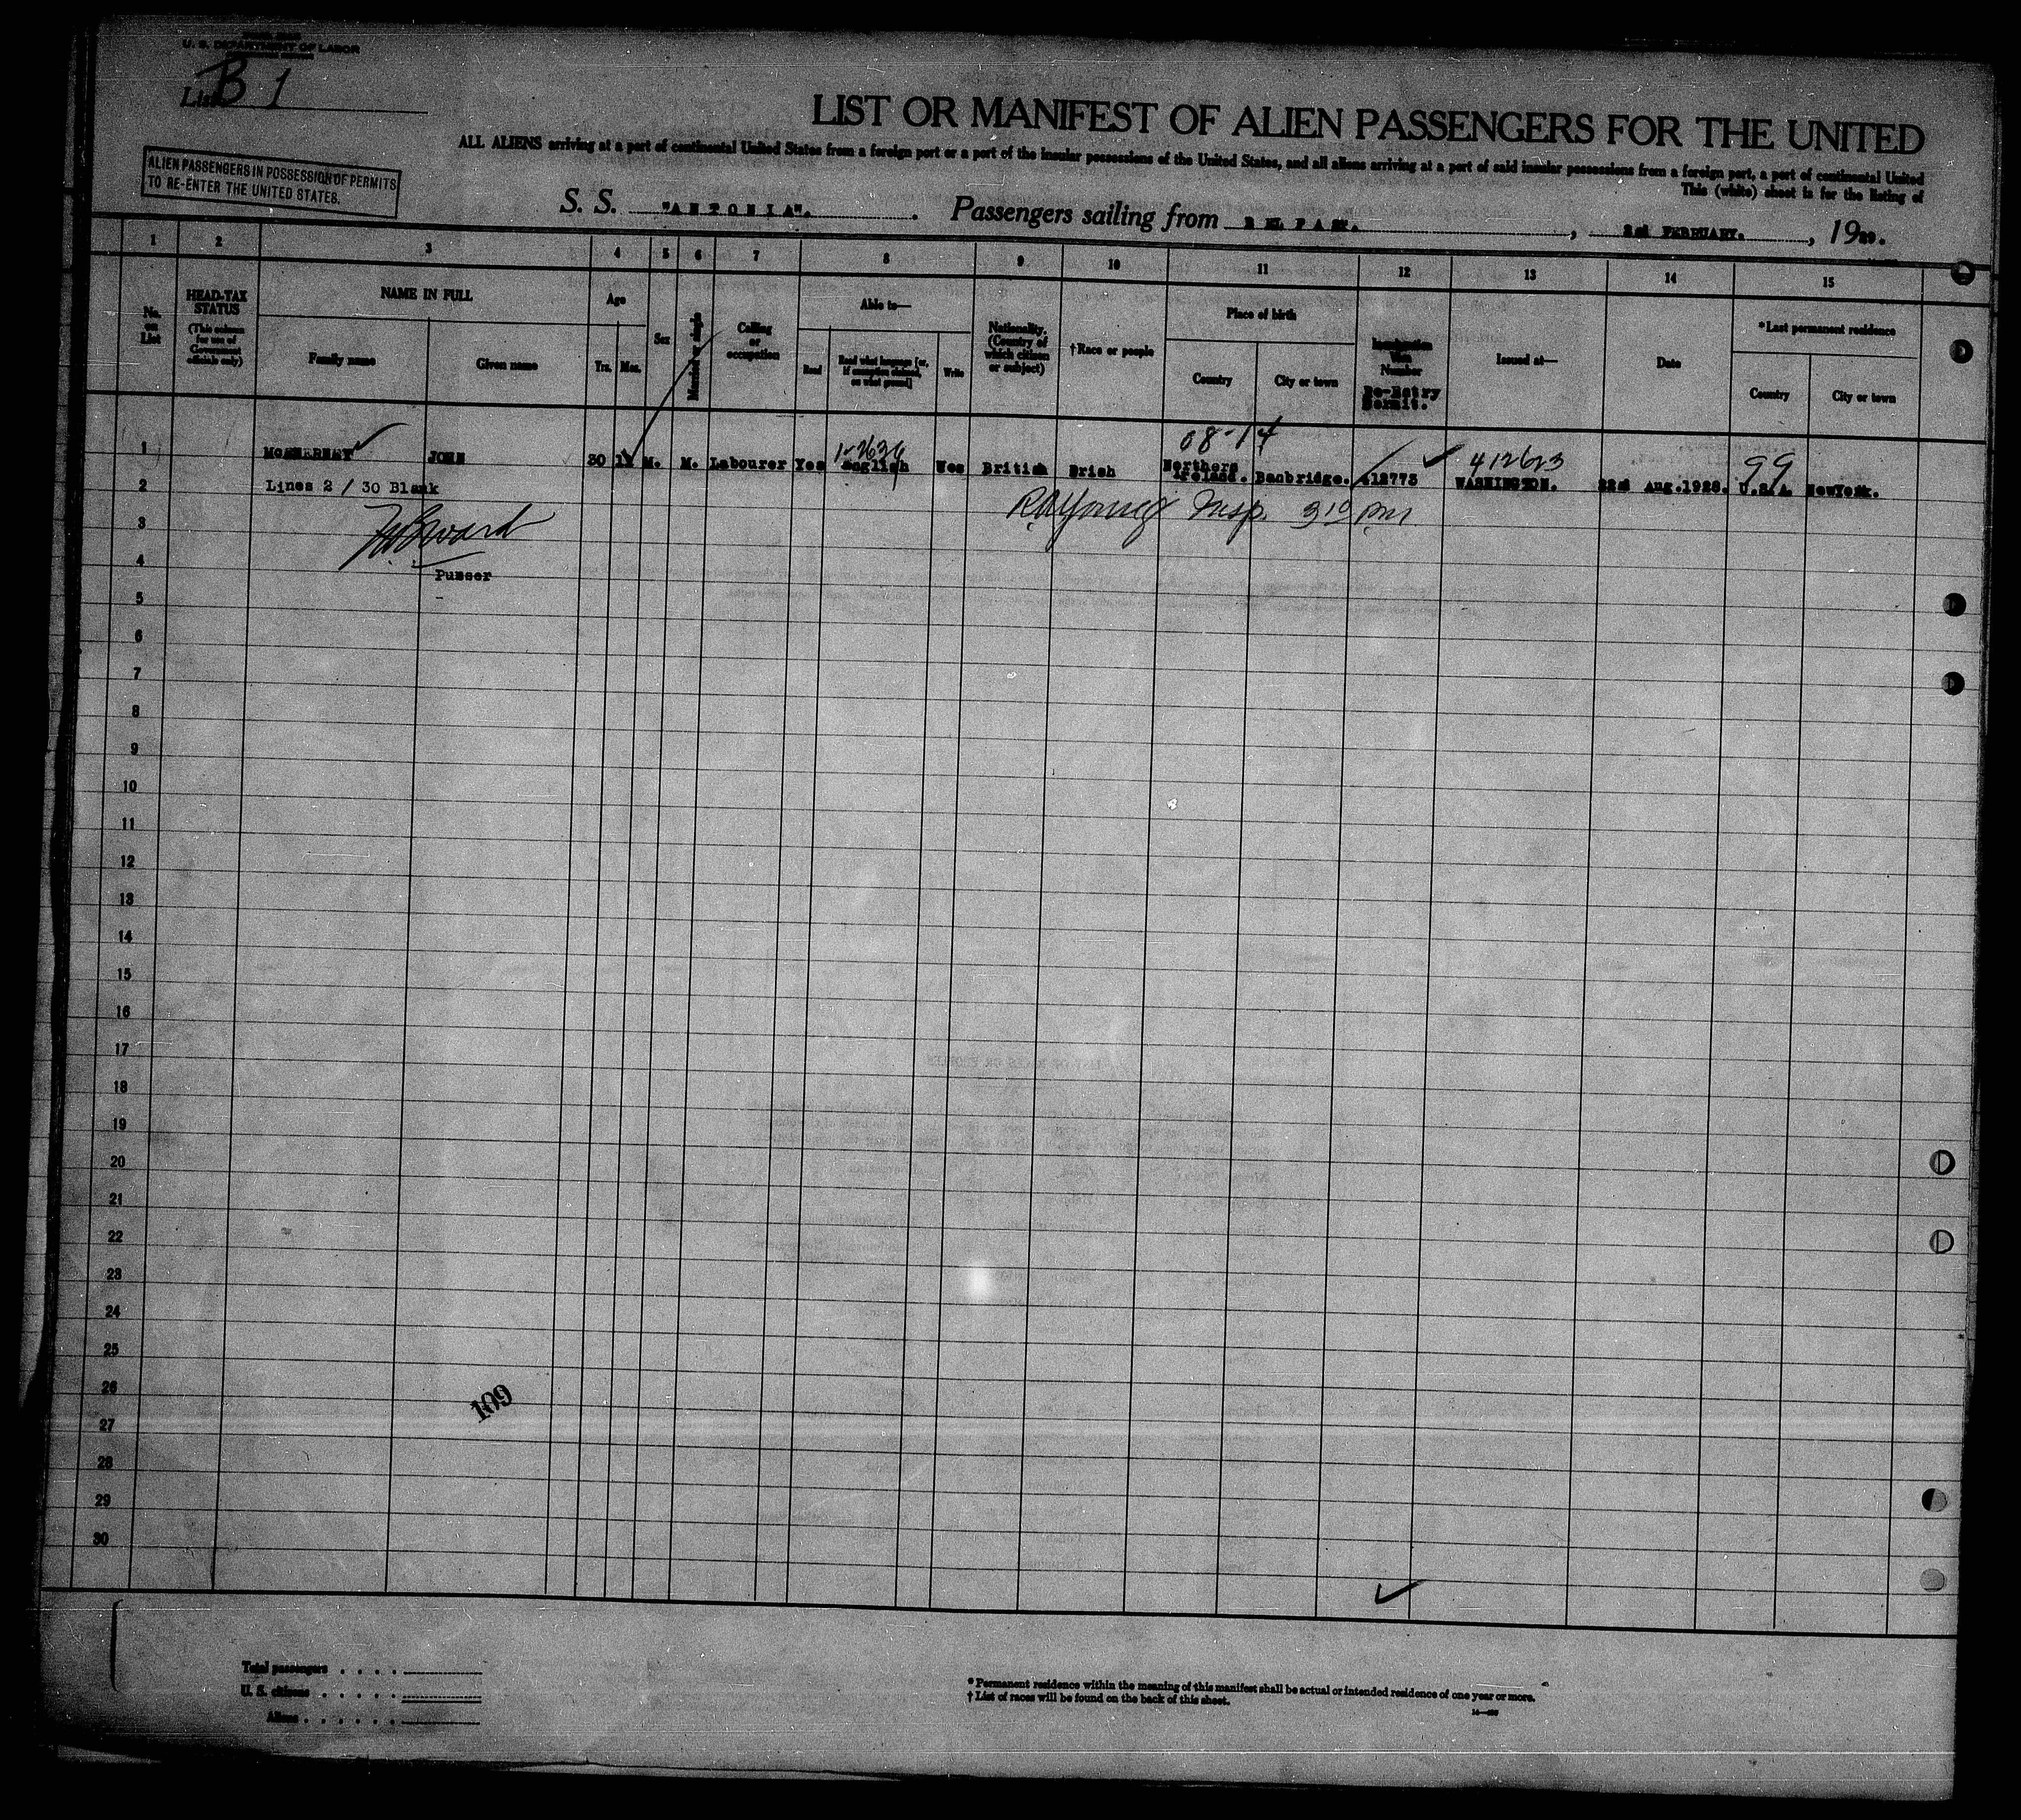 U. S. DEPARTMENT OF LABOR
List B 1
LIST OR MANIFEST OF ALIEN PASSENGERS FOR THE UNITED
ALL ALIENS arriving at a port of continental United States from a foreign port or a port of the insular possessions of the United States, and all aliens arriving at a port of said insular possessions from a foreign port, a port of continental United
This (white) sheet is for the listing of
ALIEN PASSENGERS IN POSSESSION OF PERMITS
TO RE-ENTER THE UNITED STATES.
S. S. "ANTONIA". Passengers sailing from BELFAST. , 2nd FEBRUARY. , 1929.
1 2 3 4 5 6 7 8 9 10 11 12 13 14 15
No. on List
HEAD-TAX STATUS (This column for use of Government officials only)
NAME IN FULL
Family name Given name
Age
Yrs. Mos.
Sex
Married or single
Calling or occupation
Able to—
Read Read what language [or, if exemption claimed, on what ground] Write
Nationality. (Country of which citizen or subject)
†Race or people
Place of birth
Country City or town
Immigration Visa Number
Re-Entry Permit.
Issued at—
Date
*Last permanent residence
Country City or town
08-14
1-2636 412623 99
1 JOHN 30 11 M. M. Labourer Yes English Yes British Irish Northern Ireland. Banbridge. 412773 WASHINGTON. 22nd Aug.1928. U.S.A. NewYork.
2 Lines 2 / 30 Blank
Insp. 3 10 Pm
3
4 Purser
5
6
7
8
9
10
11
12
13
14
15
16
17
18
19
20
21
22
23
24
25
26
109
27
28
29
30
Total passengers
U. S. citizens
Aliens
* Permanent residence within the meaning of this manifest shall be actual or intended residence of one year or more.
† List of races will be found on the back of this sheet.